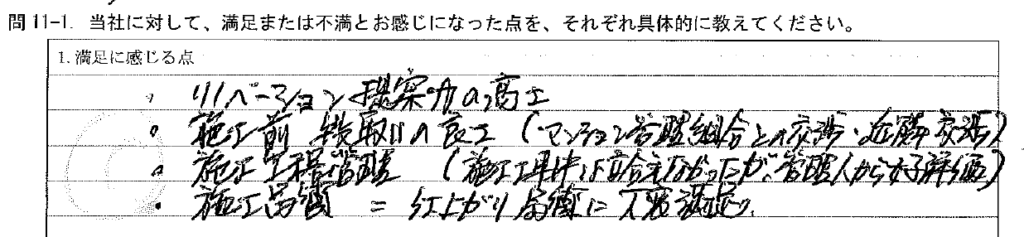 問 11-1. 当社に対して、満足または不満とお感じになった点を、それぞれ具体的に教えてください。
1. 満足に感じる点
・リノベーション提案力の高さ
・施工前 段取りの良さ (マンション管理組合との交渉・近隣交渉)
・施工工程管理 (施工工事中は立合えなかったが、管理人から好評価)
・施工品質 = 仕上がり品質に大変満足。